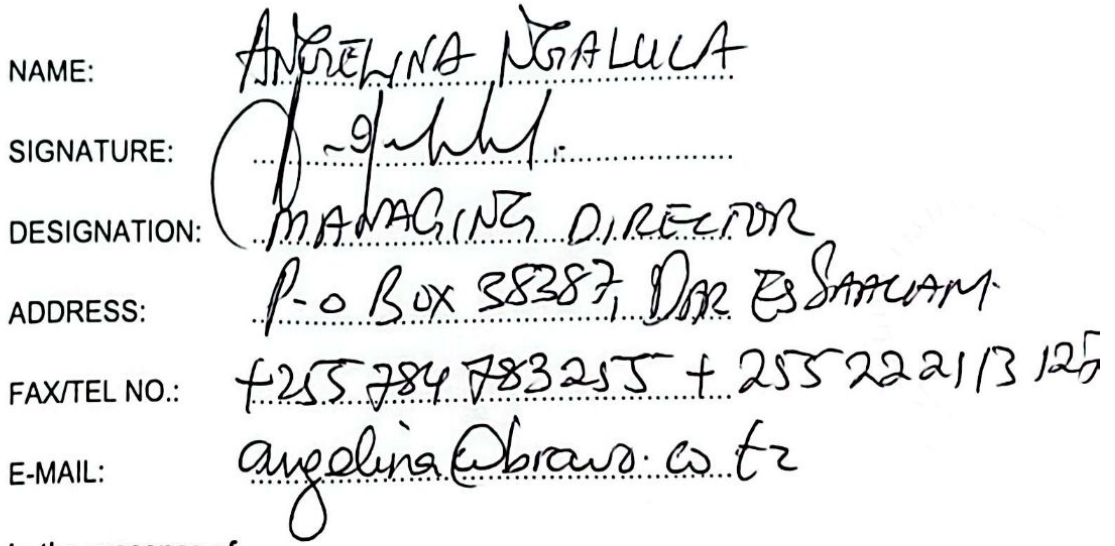 NAME: ANGELINA NGALULA
SIGNATURE:
DESIGNATION: MANAGING DIRECTOR
ADDRESS: P-O BOX 38387, DAR ES SAALAM.
FAX/TEL NO.: +255 784 783255 + 255 222113 127
E-MAIL: angelina@bravo.co.tz
In the presence of